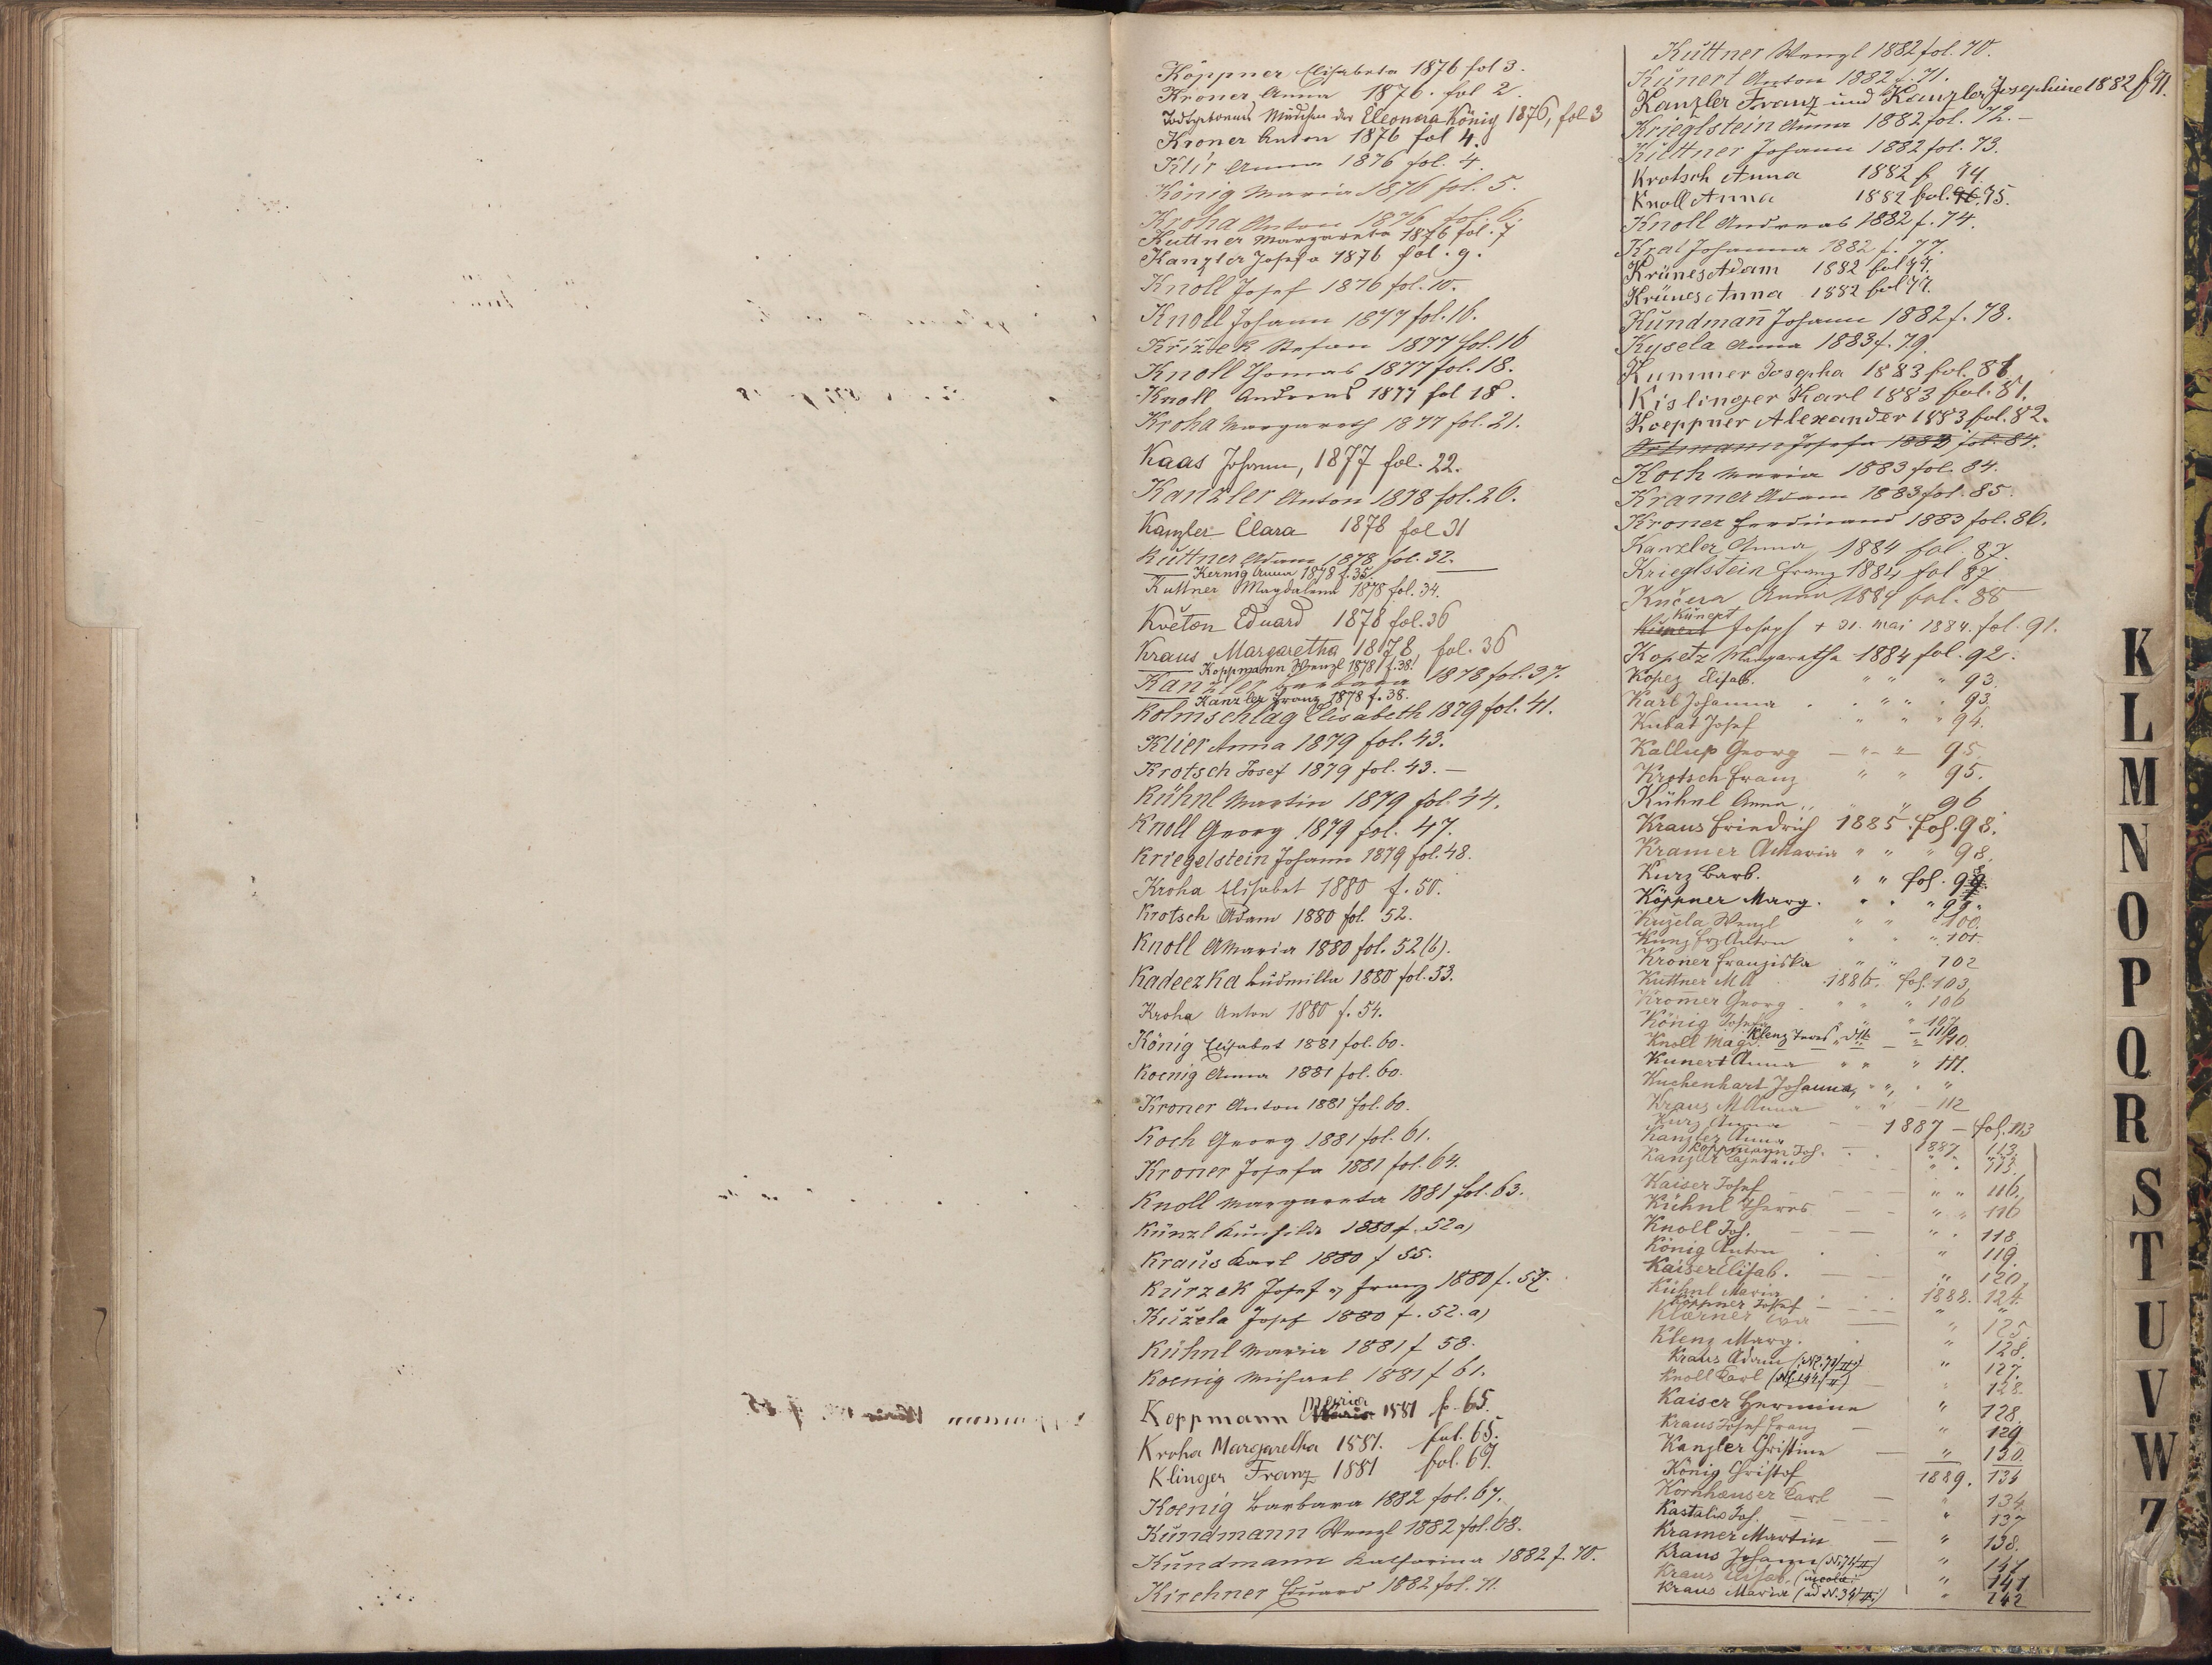 Köppner Elisabeta 1876 fol 3.
Kroner Anna 1876. fol 2
Todtgeborenes Mädchen der Eleonora König 1876, fol 3
Kroner Anton 1876 fol 4.
Klir Anna 1876 fol. 4.
König Maria 1876 fol. 5.
Kroha Anton 1876 fol. 6.
Kuttner Margareta 1876 fol. 7
Kanzler Josefa 1876 fol. 9.
Knoll Josef 1876 fol. 10.
Knoll Johann 1877 fol. 16.
Křížek Stefan 1877 fol. 16
Knoll Thomas 1877 fol. 18.
Knoll Andreas 1877 fol 18.
Kroha Margareth 1877 fol. 21.
Kaas Johann, 1877 fol. 22.
Kanzler Anton 1878 fol. 26.
Kanzler Clara 1878 fol 31
Kuttner Adam 1878 fol. 32.
Kernig Anna 1878 f. 35
Kuttner Magdalena 1878 fol. 34.
Květon Eduard 1878 fol. 36
Kraus Margaretha 1878, fol. 36
Koppmann Wenzl 1878 f. 38.
Kanzler Barbara 1878 fol. 37.
Kanzler Franz 1878 f. 38.
Kolmschlag Elisabeth 1879 fol. 41.
Klier Anna 1879 fol. 43.
Krotsch Josef 1879 fol. 43. —
Kühnl Martin 1879 fol. 44.
Knoll Georg 1879 fol. 47.
Kriegelstein Johann 1879 fol. 48.
Kroha Elisabet 1880 f. 50.
Krotsch Adam 1880 fol. 52.
Knoll AMaria 1880 fol. 52(b).
Kadeczka Ludmilla 1880 fol. 53.
Kroha Anton 1880 f. 54.
König Elisabet 1881 fol. 60.
Koenig Anna 1881 fol. 60.
Kroner Anton 1881 fol. 60.
Koch Georg 1881 fol. 61.
Kroner Josefa 1881 fol. 64.
Knoll Margareta 1881 fol. 63.
Künzl Kunhilde 1880 f. 52a)
Kraus Karl 1880 f 55.
Kurzek Josef & Franz 1880 f. 57.
Kužela Josef 1880 f. 52. a)
Kühnl Maria 1881 f 58.
Koenig Michael 1881 f 61.
Koppmann Maria 1881 f. 65.
Kroha Margaretha 1881. fol. 65.
Klinger Franz 1881 fol. 67.
Koenig Barbara 1882 fol. 67.
Kundmann Wenzl 1882 fol. 68.
Kundmann Katharina 1882 f. 70.
Kirchner Eduard 1882 fol. 71.
Kuttner Wenzl 1882 fol. 70.
Kunert Anton 1882 f. 71.
Kanzler Franz und Kanzler Josephine 1882 f. 71.
Krieglstein Anna 1882 fol. 72. —
Küttner Johann 1882 fol. 73.
Krotsch Anna 1882 f. 74.
Knoll Anna 1882 fol. 75.
Knoll Andreas 1882 f. 74.
Kral Johanna 1882 f. 77.
Krünes Adam 1882 fol 77.
Krünes Anna 1882 fol 77.
Kundmañ Johann 1882 f. 78.
Kysela Anna 1883 f. 79.
Kummer Josepha 1883 fol. 81.
Kislinger Karl 1883 fol. 81.
Koeppner Alexander 1883 fol. 82.
Josefa 1883 fol. 84.
Koch Maria 1883 fol. 84.
Kramer Adam 1883 fol. 85.
Kroner Ferdinand 1883 fol. 86.
Kanzler Anna 1884 fol. 87.
Krieglstein Franz 1884 fol 87
Kučera Anna 1884 fol. 88
Kunert
Joseph + 31. Mai 1884. fol. 91.
Kopetz Margaretha 1884 fol. 92.
Kopez Elisab. " " " 93.
Karl Johanna " " " 93.
Kubat Josef " " " 94.
Kallup Georg — " — " — 95.
Krotsch Franz " " 95.
Kühnl Anna " " 96
Kraus Friedrich 1885. fol. 98.
Kramer AMaria " " " 98.
Kurz Barb. " " fol. 99.
Köppner Marg. " " " 99.
Kužela Wenzl " " 100.
Kunz Frz Anton " " " 101.
Kroner Franziska " " 102
Kuttner MA 1886. fol. 103.
Kromer Georg " " " 106
König Josefa " " " 107
Klenz Teres " dtto — 110.
Knoll Magd. 110.
Kunert Anna " " " 111.
Kuchenhart Johanna " " "
Kraus MAnna " " — 112
Kurz Anna — — 1887 — fol. 113
Kanzler Anna
Koppmann Joh. 1887. 113.
Kanzler " " 113.
Kaiser Josef — " " 116.
Kühnl Theres — " " 116
Knoll Joh. — " " 118.
König Anton " 119.
Kaiser Elisab. — " 120.
Kühnl Maria 1888. 124.
Köppner Josef — " "
Klärner Eva — " 125.
Klenz Marg. " 128.
Kraus Adam (N. 71/II) " 127.
Knoll Karl (N. 144/II) — " 128.
Kaiser Hermine " 128.
Kraus Josef Franz — " 129
Kanzler Christine — " 130.
König Christof 1889. 134
Kornhauser Karl — " 134.
Kastalis Joh. — " 137
Kramer Martin — " 138.
Kraus Johann (N. 71/II) " 141
Kraus Elisab. " 141
Kraus Maria (ad N. 34/II) " 142
K
L
M
N
O
P
Q
R
S
T
U
V
W
Z